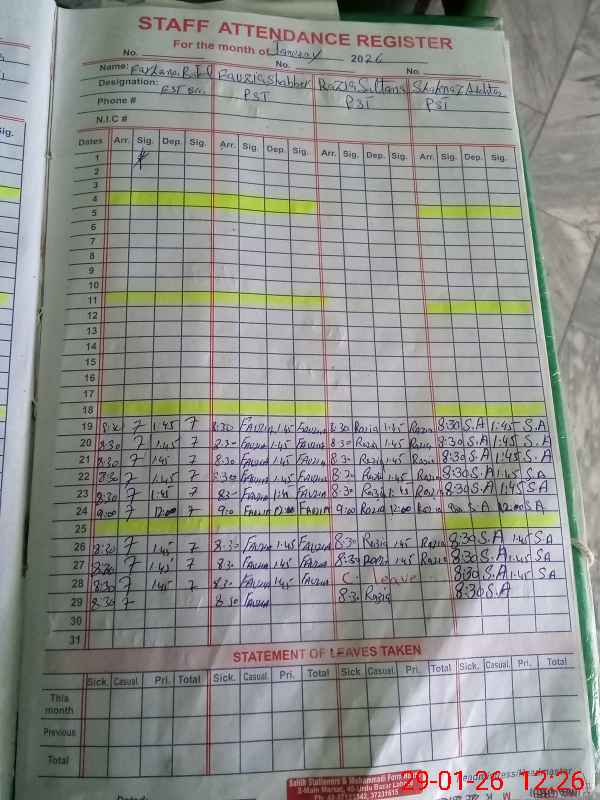 STAFF ATTENDANCE REGISTER
For the month of January 2026
No. No. No.
Name: Farhana Fauzia Shabber Razia Sultana Shahnaz Akhtar
Designation: PST PST PST
Phone #
N.I.C #
Dates Arr. Sig. Dep. Sig. Arr. Sig. Dep. Sig. Arr. Sig. Dep. Sig. Arr. Sig. Dep. Sig.
1
2
3
4
5
6
7
8
9
10
11
12
13
14
15
16
17
18
19 8:30 7 1:45 7 8:30 Fauzia 1:45 Fauzia 8:30 Razia 1:45 Razia 8:30 S.A 1:45 S.A
20 8:30 7 1:45 7 8:30 Fauzia 1:45 Fauzia 8:30 Razia 1:45 Razia 8:30 S.A 1:45 S.A
21 8:30 7 1:45 7 8:30 Fauzia 1:45 Fauzia 8:30 Razia 1:45 Razia 8:30 S.A 1:45 S.A
22 8:30 7 1:45 7 8:30 Fauzia 1:45 Fauzia 8:30 Razia 1:45 Razia 8:30 S.A 1:45 S.A
23 8:30 7 1:45 7 8:30 Fauzia Fauzia 8:30 Razia Razia 8:30 S.A 1:45 S.A
24 9:00 7 12:00 7 9:0 Fauzia 12:00 Fauzia 9:00 Razia 12:00 Razia 9:00 S.A 12:00 S.A
25
26 8:30 7 1:45 7 8:30 Fauzia 1:45 Fauzia 8:30 Razia 1:45 Razia 8:30 S.A 1:45 S.A
27 8:30 7 1:45 7 8:30 Fauzia 1:45 Fauzia 8:30 Razia 1:45 Razia 8:30 S.A 1:45 S.A
28 8:30 7 1:45 7 8:30 Fauzia 1:45 Fauzia C. Leave 8:30 S.A 1:45 S.A
29 8:30 7 8:30 Fauzia 8:30 Razia 8:30 S.A
30
31
STATEMENT OF LEAVES TAKEN
Sick. Casual. Pri. Total Sick. Casual. Pri. Total Sick. Casual. Pri. Total Sick. Casual. Pri. Total
This month
Previous
Total
Headmistress/Headmaster
Sahib Stationers & Muhammadi Form House
2-Main Market, 40-Urdu Bazar Lahore
29-01-26 12:26